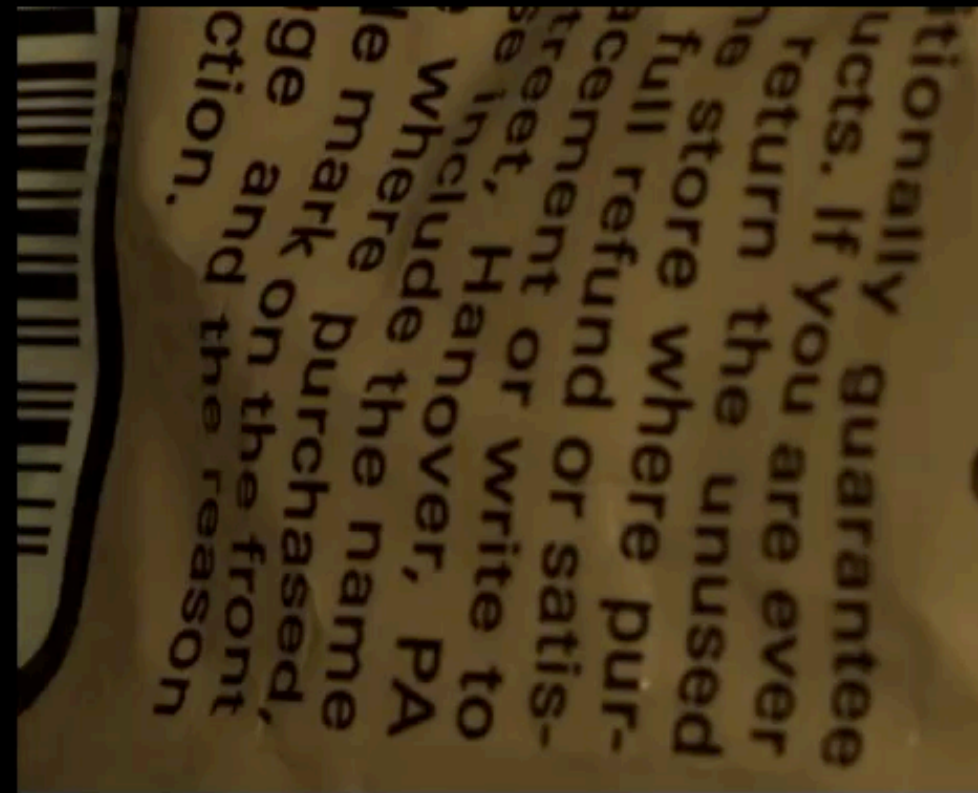 itionally guarantee
ucts. If you are ever
return the unused
he store where pur-
full refund or satis-
acement or write to
treet, Hanover, PA
se include the name
e where purchased,
le mark on the front
ge and the reason
ction.